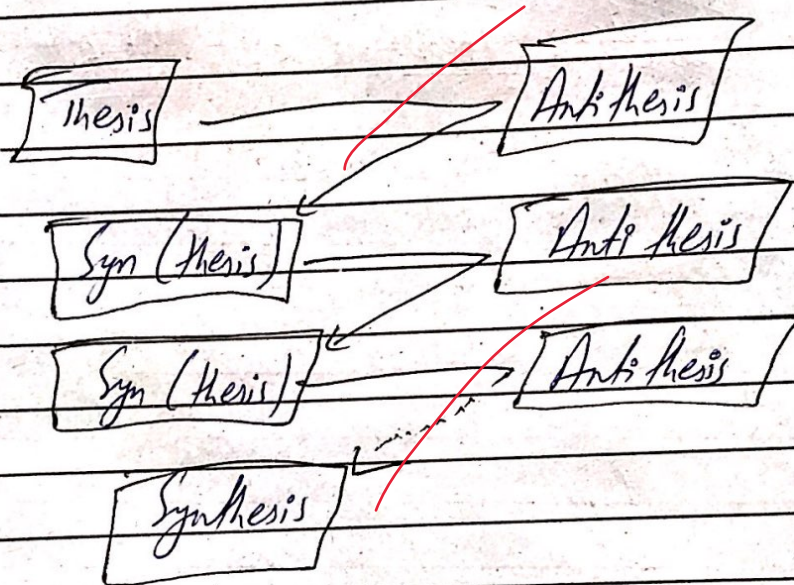 Thesis Antithesis
Syn (thesis) Anti thesis
Syn (thesis) Anti thesis
Synthesis